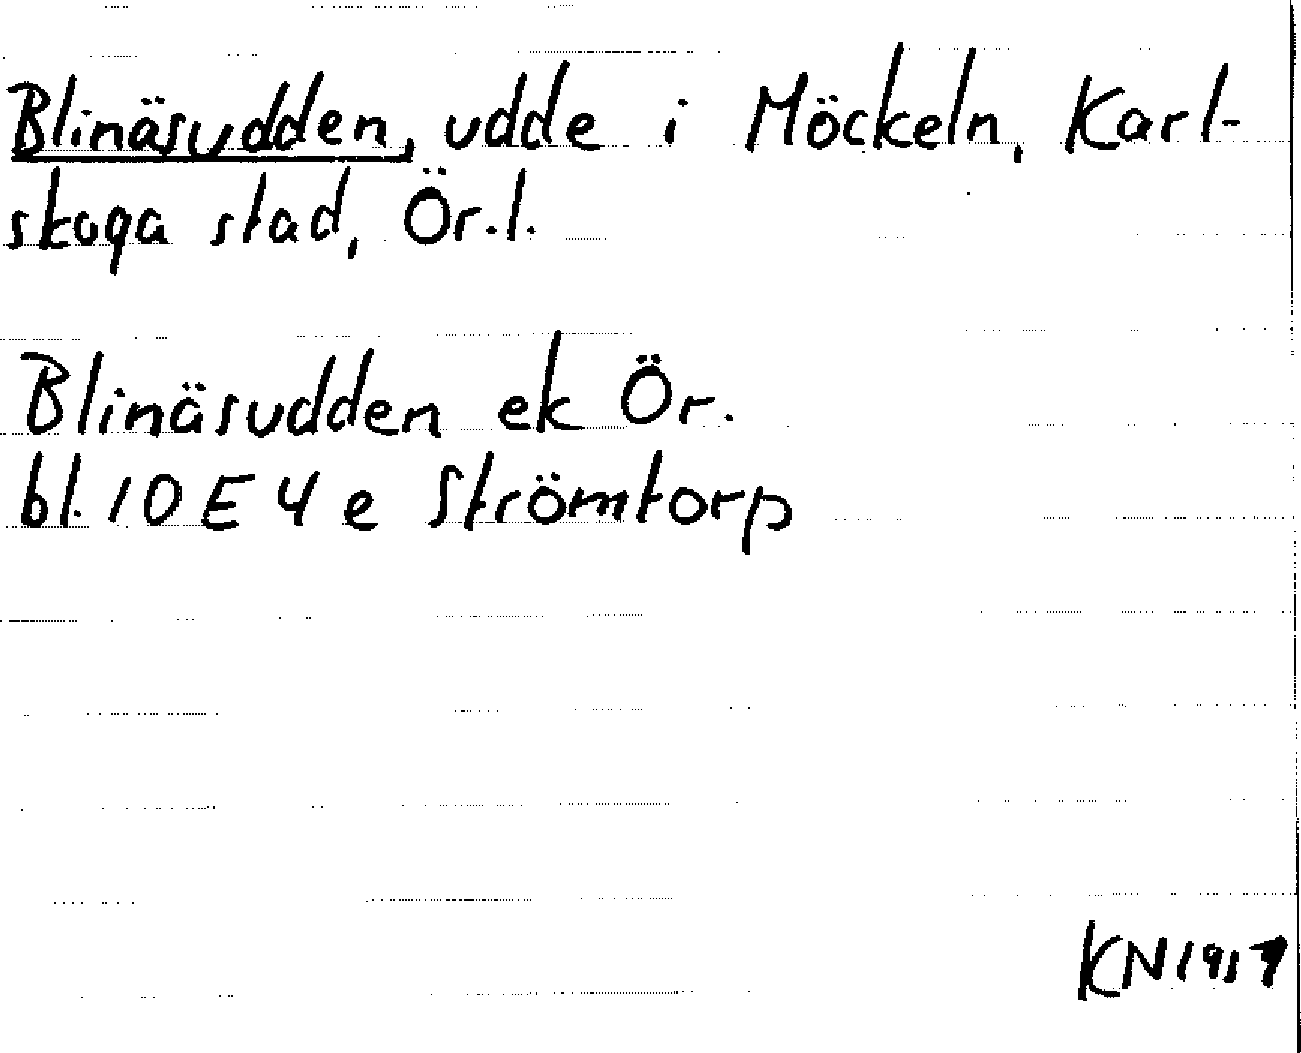 Blinäsudden, udde i Möckeln, Karl-
skoga stad, Ör.l.
Blinäsudden ek Ör.
bl. 10 E 4 e Strömtorp
KN 1917